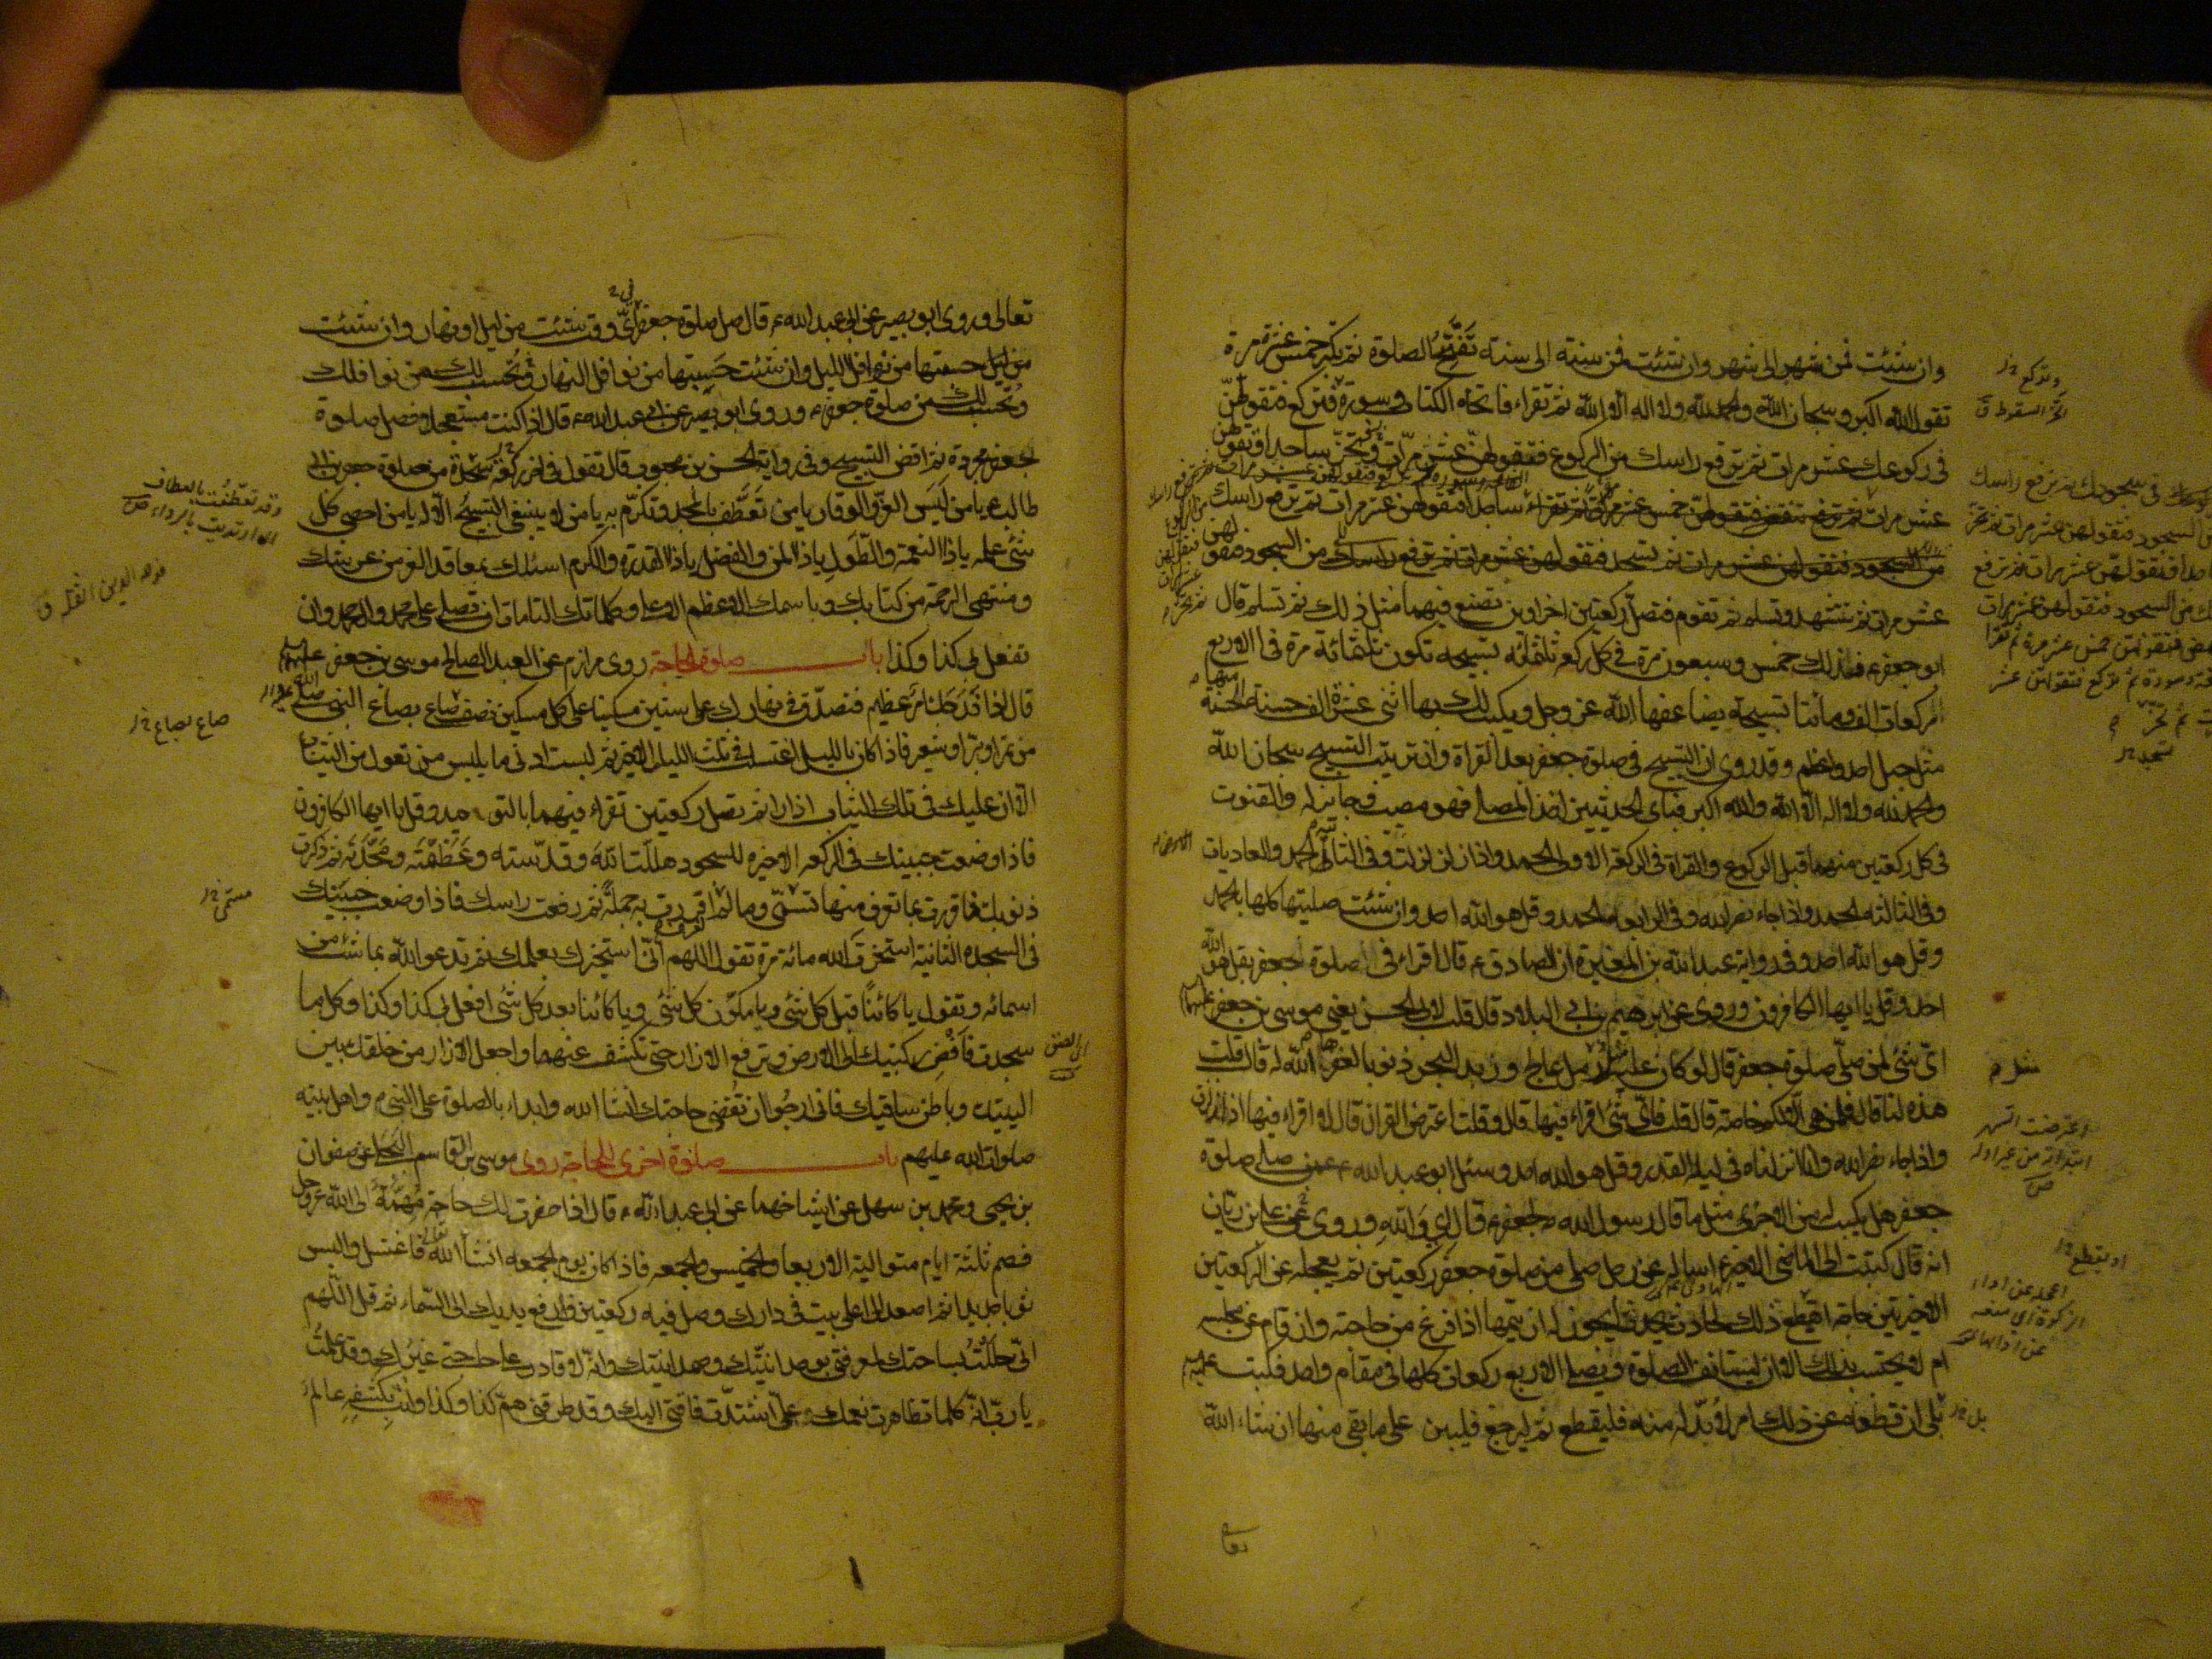 وان شئت فمن شهر الى شهر وان شئت فمن سنة الى سنة تفتتح الصلوة ثم تكبر خمس عشرة مرة
تقول الله اكبر وسبحان الله والحمد لله ولا اله الا الله ثم تقراء فاتحة الكتاب وسورة فتركع فتقولهن
في ركوعك عشر مرات ثم ترفع راسك من الركوع فتقولهن عشر مرات وتخر ساجدا فتقولهن
عشر مرات
عشر مرات ثم تتشهد وتسلم ثم تقوم فتصل ركعتين اخراوين تصنع فيهما مثل ذلك ثم تسلم قال
ابو جعفر ع فذلك خمس وسبعون مرة في كل ركعة ثلثمائة تسبيحة تكون ثلثمائة مرة في الاربع
الركعات الف ومائتا تسبيحة يضاعفها الله عز وجل ويكتب لك بها اثنى عشرة الف حسنة الحسنة منها
مثل جبل احد واعظم وقد روى ان التسبيح في صلوة جعفر بعد القراة وان ترتيب التسبيح سبحان الله
والحمد لله ولا اله الا الله والله اكبر فباى الحديثين اخذ المصلى فهو مصيب وجايز له والقنوت
في كل ركعتين منهما قبل الركوع والقراة في الركعة الاولى الحمد واذا زلزلت وفي الثانية الحمد والعاديات
وفي الثالثة الحمد واذا جاء نصر الله وفي الرابعة الحمد وقل هو الله احد وان شئت صليتها كلها بالحمد
وقل هو الله احد وفي رواية عبد الله بن المغيرة ان الصادق ع قال اقراء في صلوة جعفر بقل هو الله
احد وقل يا ايها الكافرون وروى عن ابرهيم بن ابي البلاد قال قلت لابى الحسن يعني موسى بن جعفر عليهما
اى شئ لمن صلى صلوة جعفر قال لو كان عليه مثل رمل عالج وزبد البحر ذنوبا لغفرها الله له قال قلت
هذه لنا قال فلمن هي الا لكم خاصة قال قلت فاى شئ اقراء فيها قال وقلت اعترض القران قال لا اقراء فيها اذا زلزلت
واذا جاء نصر الله وانا انزلناه في ليلة القدر وقل هو الله احد وسئل ابو عبد الله ع عمن صلى صلوة
جعفر هل يكتب له من الاجر مثل ما قال رسول الله ص لجعفر ع قال اى والله وروى عن علي بن ريان
انه قال كتبت الى الماضى الاخير ع اساله عن رجل صلى من صلوة جعفر ركعتين ثم يعجله عن الركعتين
الاخيرتين حاجة ايقطع ذلك لحادث يحدث ايجوز له ان يتمها اذا فرغ من حاجته وان قام عن مجلسه
ام لا يحتسب بذلك الا ان يستانف الصلوة ويصلى الاربع ركعات كلها في مقام واحد فكتب عليه السلم
بلى ان قطعه عن ذلك امر لا بد له منه فليقطع ثم ليرجع فليبن على ما بقى منها ان شاء الله
وتركع
مثل م
اعترضت الشهر
ابتداته من غير اوله
او يقطع
بل
تعالى وروى ابو بصير عن ابي عبد الله ع قال صل صلوة جعفر في اى وقت شئت من ليل او نهار وان شئت
حسبتها من نوافل الليل وان شئت حسبتها من نوافل النهار وتحسب لك من نوافلك
وتحسب لك من صلوة جعفر ع وروى ابو بصير عن ابي عبد الله ع قال اذا كنت مستعجلا فصل صلوة
جعفر مجردة ثم اقض التسبيح وفي رواية الحسن بن محبوب قال تقول في اخر سجدة من صلوة جعفر بن ابي
طالب ع يا من لبس العز والوقار يا من تعطف بالمجد وتكرم به يا من لا ينبغى التسبيح الا له يا من احصى كل
شئ علمه يا ذا النعمة والطول يا ذا المن والفضل يا ذا القدرة والكرم اسئلك بمعاقد العز من عرشك
ومنتهى الرحمة من كتابك وباسمك الاعظم الاعلى وكلماتك التامات ان تصلى على محمد وال محمد وان
تفعل بى كذا وكذا باب صلوة الحاجة روى مرازم عن العبد الصالح موسى بن جعفر عليهما
قال اذا فدحك امر عظيم فتصدق في نهارك على ستين مسكينا على كل مسكين نصف صاع بصاع النبي صلى الله عليه واله
من تمر او بر او شعير فاذا كان بالليل اغتسلت في ثلث الليل الاخير ثم لبست ادنى ما يلبس من تعول من الثياب
الا ان عليك في تلك الثياب ازارا ثم تصلى ركعتين تقراء فيهما بالتوحيد وقل يا ايها الكافرون
فاذا وضعت جبينك في الركعة الاخيرة للسجود هللت الله وقدسته وعظمته ومجدته ثم ذكرت
ذنوبك فاقررت بما تعرف منها تسمى وما لم تعرف اقررت به جملة ثم رفعت راسك فاذا وضعت جبينك
في السجدة الثانية استخرت الله مائة مرة تقول اللهم انى استخيرك بعلمك ثم تدعو الله بما شئت من
اسمائه وتقول يا كائنا قبل كل شئ ويا مكون كل شئ ويا كائنا بعد كل شئ افعل بى كذا وكذا وكلما
سجدت فافض بركبتيك الى الارض وترفع الازار حتى تكشف عنهما واجعل الازار من خلفك بين
اليتيك وباطن ساقيك فانى ارجو ان تقضى حاجتك انشا الله وابداء بالصلوة على النبي واهل بيته
صلوات الله عليهم باب صلوة اخرى للحاجة روى موسى بن القاسم البجلى عن صفوان
بن يحيى ومحمد بن سهل عن اشياخهما عن ابى عبد الله ع قال اذا حضرت لك حاجة مهمة الى الله عز وجل
فصم ثلثة ايام متوالية الاربعا والخميس والجمعة فاذا كان يوم الجمعة انشا الله فاغتسل والبس
ثوبا جديدا ثم اصعد الى اعلى بيت في دارك وصل فيه ركعتين وارفع يديك الى السماء ثم قل اللهم
انى حللت بساحتك لمعرفتى بوحدانيتك وصمدانيتك وانه لا قادر على حاجتى غيرك وقد علمت
يا رب انه كلما تظاهرت نعمك على اشتدت فاقتى اليك وقد طرقنى هم كذا وكذا وانت بكشفه عالم
وقد تعطفت بالعطاف
اى ارتديت بالرداء ص
فدحه الدين اثقله ق
صاع بصاع